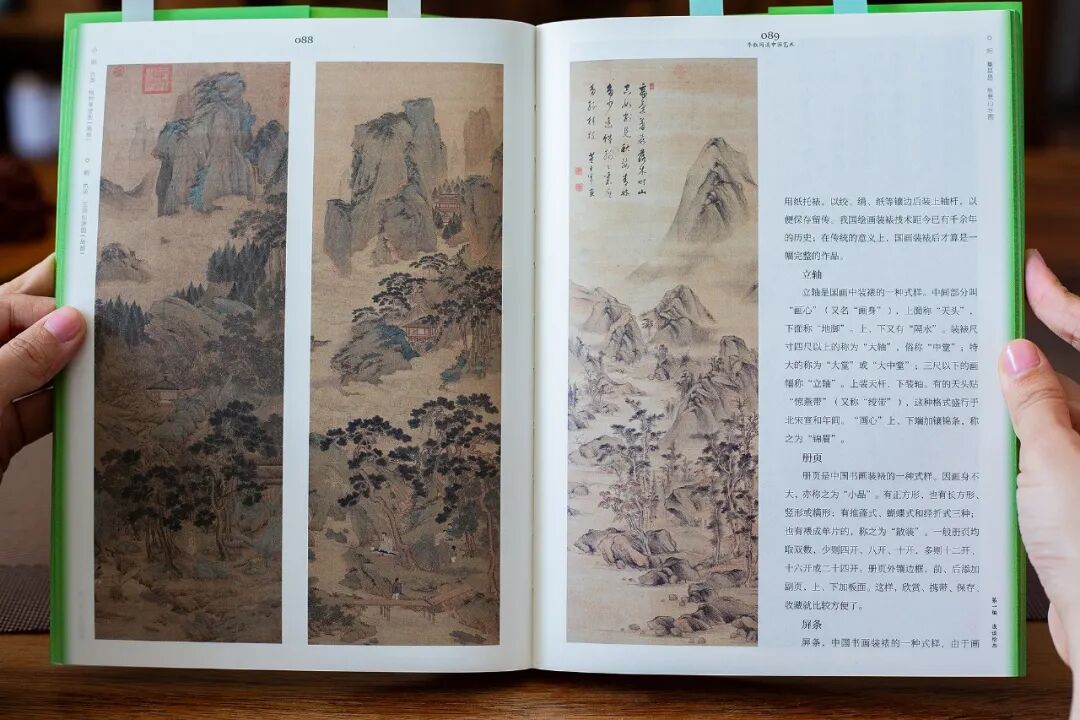 088
089
用纸托裱，以绫、绢、纸等镶边后装上轴杆，以
便保存留传。我国绘画装裱技术距今已有千余年
的历史；在传统的意义上，国画装裱后才算是一
幅完整的作品。
立轴
立轴是国画中装裱的一种式样。中间部分叫
“画心”（又名“画身”），上面称“天头”，
下面称“地脚”。上、下又有“隔水”。装裱尺
寸四尺以上的称为“大轴”，俗称“中堂”；特
大的称为“大堂”或“大中堂”；三尺以下的画
幅称“立轴”。上装天杆、下装轴。有的天头贴
“惊燕带”（又称“绶带”），这种格式盛行于
北宋宣和年间。“画心”上、下端加镶锦条，称
之为“锦眉”。
册页
册页是中国书画装裱的一种式样。因画身不
大，亦称之为“小品”。有正方形，也有长方形、
竖形或横形；有推蓬式、蝴蝶式和经折式三种；
也有裱成单片的，称之为“散装”。一般册页均
取双数，少则四开、八开、十开，多则十二开、
十六开或二十四开。册页外镶边框，前、后添加
副页，上、下加板面。这样，欣赏、携带、保存、
收藏就比较方便了。
屏条
屏条，中国书画装裱的一种式样，由于画
第一编 浅谈绘画